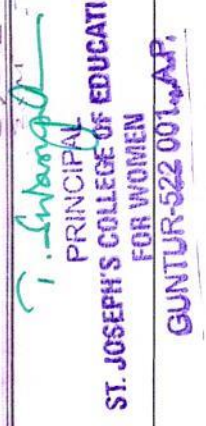 PRINCIPAL
ST. JOSEPH'S COLLEGE OF EDUCATI
FOR WOMEN
GUNTUR-522 001, A.P.